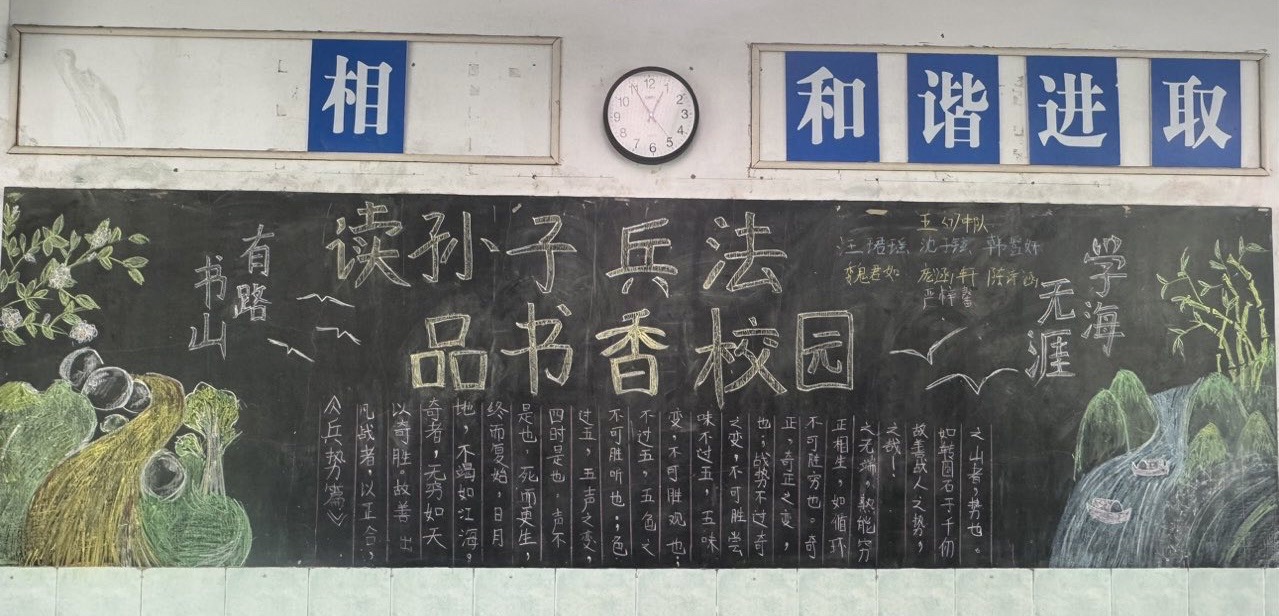 相
和谐进取
12
1
2
3
4
5
6
7
8
9
10
11
读孙子兵法
品书香校园
中队
魏君如
书山
有路
学海
无涯
《兵势篇》
凡战者，以正合，
以奇胜。故善出
奇者，无穷如天
地，不竭如江海。
终而复始，日月
是也。死而更生，
四时是也。声不
过五，五声之变，
不可胜听也；色
不过五，五色之
变，不可胜观也；
味不过五，五味
之变，不可胜尝
也；战势不过奇
正，奇正之变，
不可胜穷也。奇
正相生，如循环
之无端，孰能穷
之哉！
故善战人之势，
如转圆石于千仞
之山者，势也。